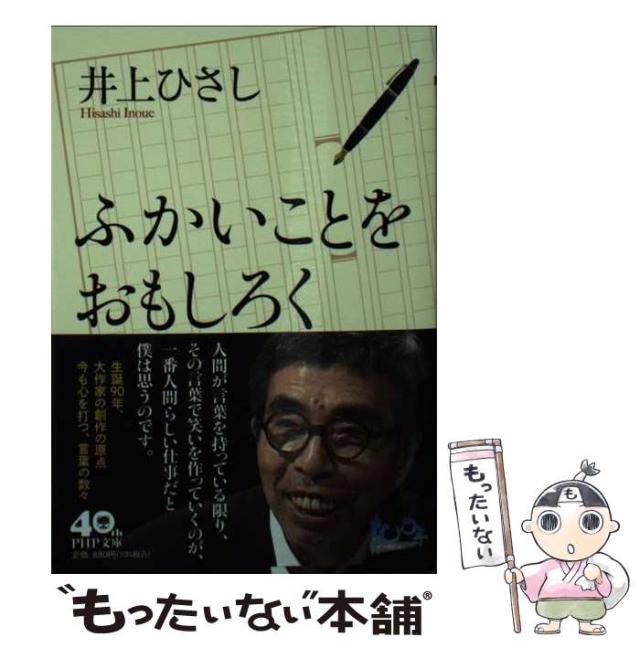 井上ひさし
Hisashi Inoue
ふかいことを
おもしろく
人間が言葉を持っている限り、
その言葉で笑いを作っていくのが、
一番人間らしい仕事だと
僕は思うのです。
生誕90年、
大作家の創作の原点
今も心を打つ、言葉の数々
40th
PHP文庫
定価:880円(10%税込)
もったいない
も
"もったいない"本舗®